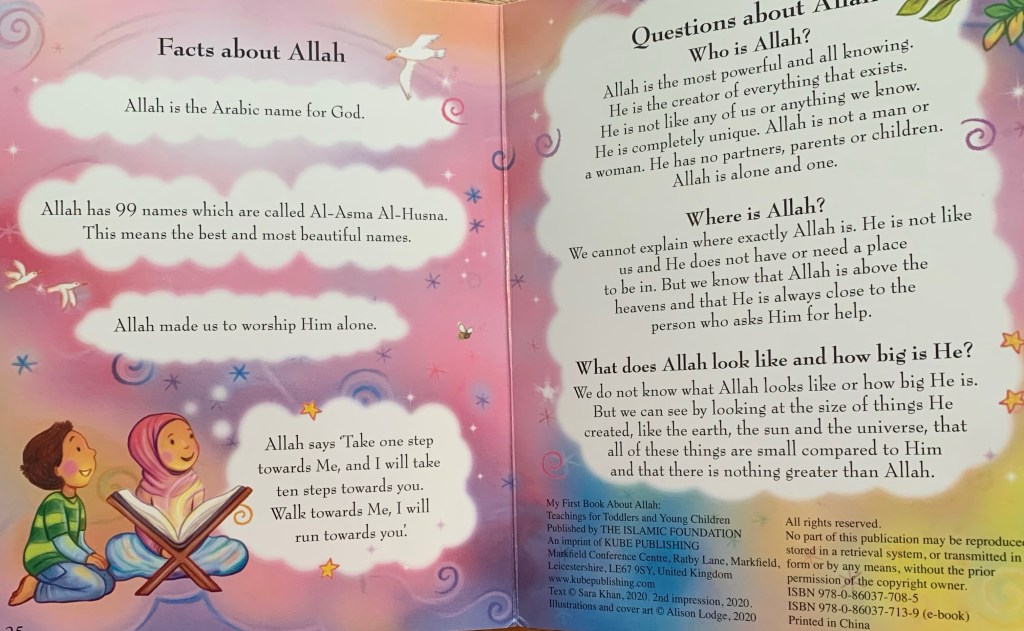 Facts about Allah
Allah is the Arabic name for God.
Allah has 99 names which are called Al-Asma Al-Husna.
This means the best and most beautiful names.
Allah made us to worship Him alone.
Allah says ‘Take one step
towards Me, and I will take
ten steps towards you.
Walk towards Me, I will
run towards you’.
Questions about Allah
Who is Allah?
Allah is the most powerful and all knowing.
He is the creator of everything that exists.
He is not like any of us or anything we know.
He is completely unique. Allah is not a man or
a woman. He has no partners, parents or children.
Allah is alone and one.
Where is Allah?
We cannot explain where exactly Allah is. He is not like
us and He does not have or need a place
to be in. But we know that Allah is above the
heavens and that He is always close to the
person who asks Him for help.
What does Allah look like and how big is He?
We do not know what Allah looks like or how big He is.
But we can see by looking at the size of things He
created, like the earth, the sun and the universe, that
all of these things are small compared to Him
and that there is nothing greater than Allah.
My First Book About Allah:
Teachings for Toddlers and Young Children
Published by THE ISLAMIC FOUNDATION
An imprint of KUBE PUBLISHING
Markfield Conference Centre, Ratby Lane, Markfield,
Leicestershire, LE67 9SY, United Kingdom
www.kubepublishing.com
Text © Sara Khan, 2020. 2nd impression, 2020.
Illustrations and cover art © Alison Lodge, 2020
All rights reserved.
No part of this publication may be reproduced
stored in a retrieval system, or transmitted in
form or by any means, without the prior
permission of the copyright owner.
ISBN 978-0-86037-708-5
ISBN 978-0-86037-713-9 (e-book)
Printed in China